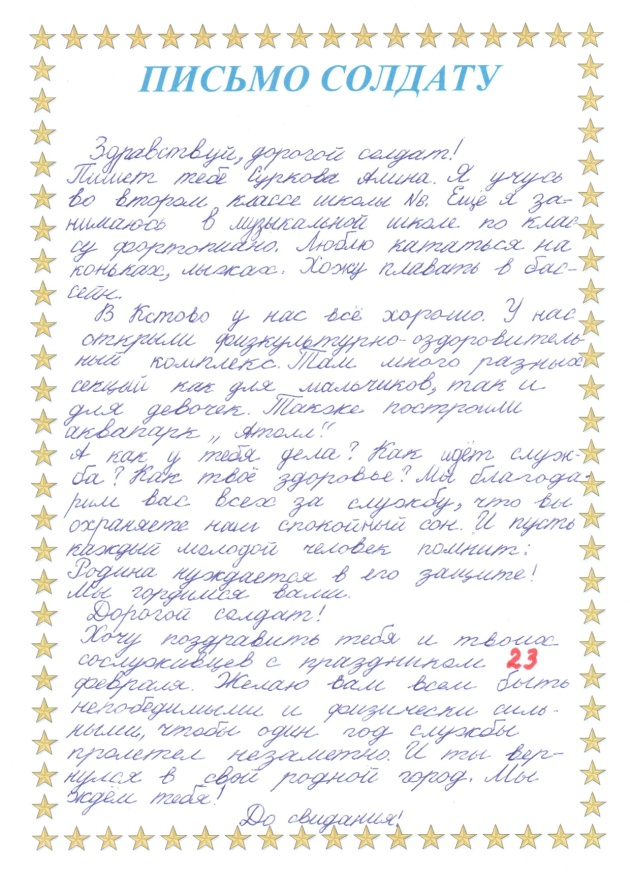 ПИСЬМО СОЛДАТУ
Здравствуй, дорогой солдат!
Пишет тебе Суркова Алина. Я учусь
во втором классе школы №8. Ещё я за-
нимаюсь в музыкальной школе по клас-
су фортопиано. Люблю кататься на
коньках, лыжах. Хожу плавать в бас-
сейн.
В Кстово у нас всё хорошо. У нас
открыли физкультурно-оздоровитель-
ный комплекс. Там много разных
секций как для мальчиков, так и
для девочек. Также построили
аквапарк „Атолл".
А как у тебя дела? Как идёт служ-
ба? Как твоё здоровье? Мы благода-
рим вас всех за службу, что вы
охраняете наш спокойный сон. И пусть
каждый молодой человек помнит:
Родина нуждается в его защите!
Мы гордимся вами.
Дорогой солдат!
Хочу поздравить тебя и твоих
сослуживцев с праздником 23
февраля. Желаю вам всем быть
непобедимыми и физически силь-
ными, чтобы один год службы
пролетел незаметно. И ты вер-
нулся в свой родной город. Мы
ждём тебя!
До свидания!